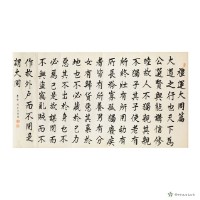 禮運大同篇
大道之行也天下為
公選賢與能講信修
睦故人不獨親其親
不獨子其子使老有
所終壯有所用幼有
所長矜寡孤獨廢疾
者皆有所養男有分
女有歸貨惡其棄於
地也不必藏於己力
惡其不出於身也不
必為己是故謀閉而
不興盜竊亂賊而不
作故外戶而不閉是
謂大同